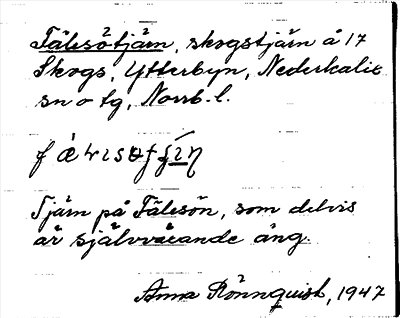 Fälesötjärn, skogstjärn å 17
Skogs, Ytterbyn, Nederkalix
sn o tg, Norrb. l.
Tjärn på Fälesön, som delvis
är självvarande äng.
Anna Rönnquist, 1947